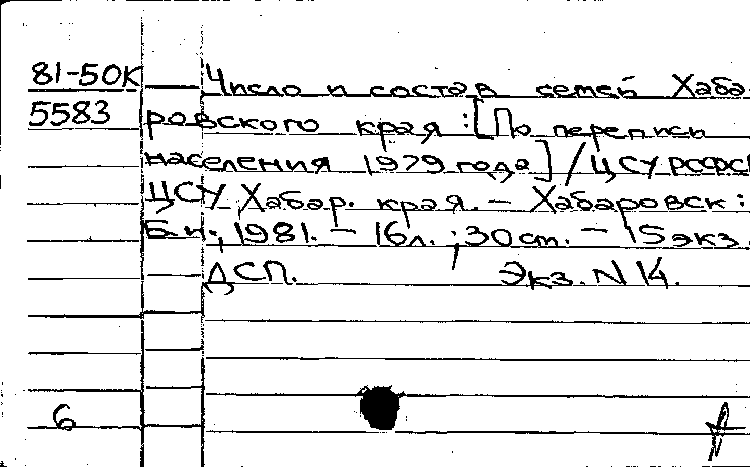 81-50К Число и состав семей Хаба-
5583 ровского края : [По перепись
населения 1979 года] / ЦСУ РСФСР
ЦСУ Хабар. края. – Хабаровск :
Б.и., 1981. – 16л. ; 30 cm. – 15 экз.
ДСП. Экз. N 14.
6